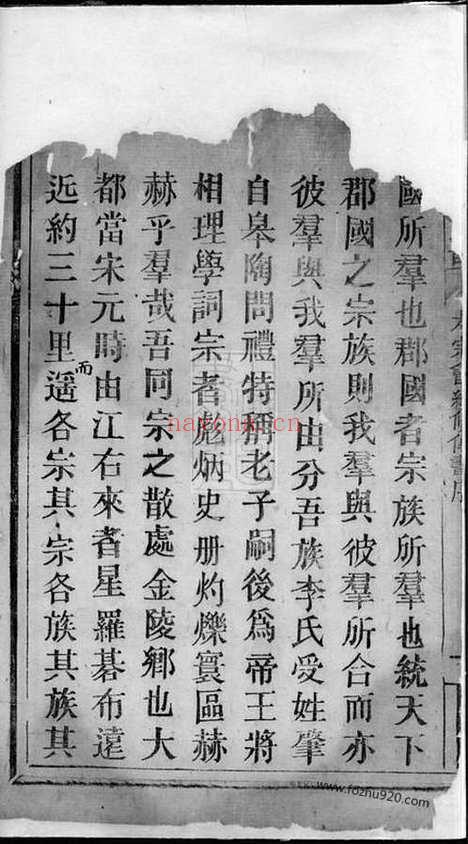 國所羣也郡國者宗族所羣也統天下
郡國之宗族則我羣與彼羣所合而亦
彼羣與我羣所由分吾族李氏受姓肇
自皋陶問禮特稱老子嗣後爲帝王將
相理學詞宗者彪炳史册灼爍寰區赫
赫乎羣哉吾同宗之散處金陵鄉也大
都當宋元時由江右來者星羅碁布遠
近約三十里而遥各宗其宗各族其族其
www.fozhu920.com